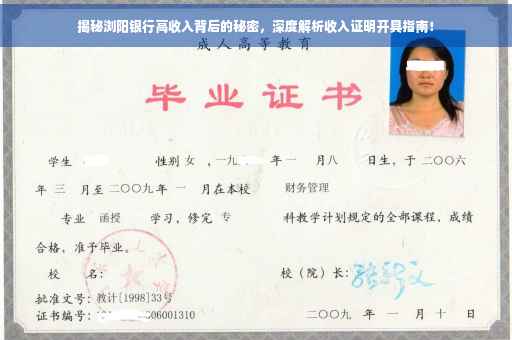 揭秘浏阳银行高收入背后的秘密，深度解析收入证明开具指南！
成人高等教育
毕业证书
学生 性别 女 ，一九 年一 月八 日生，于二〇〇六
年 三 月至二〇〇九年 一 月在本校 财务管理
专业 函授 学习，修完 专 科教学计划规定的全部课程，成绩
合格，准予毕业。
校 名： 校（院）长：
批准文号：教计[1998]33号
证书编号： 06001310 二〇〇九 年 一 月 十 日